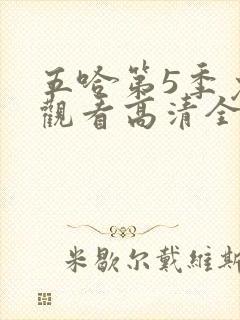 五哈第5季
觀看高清全
米歇尔戴維斯